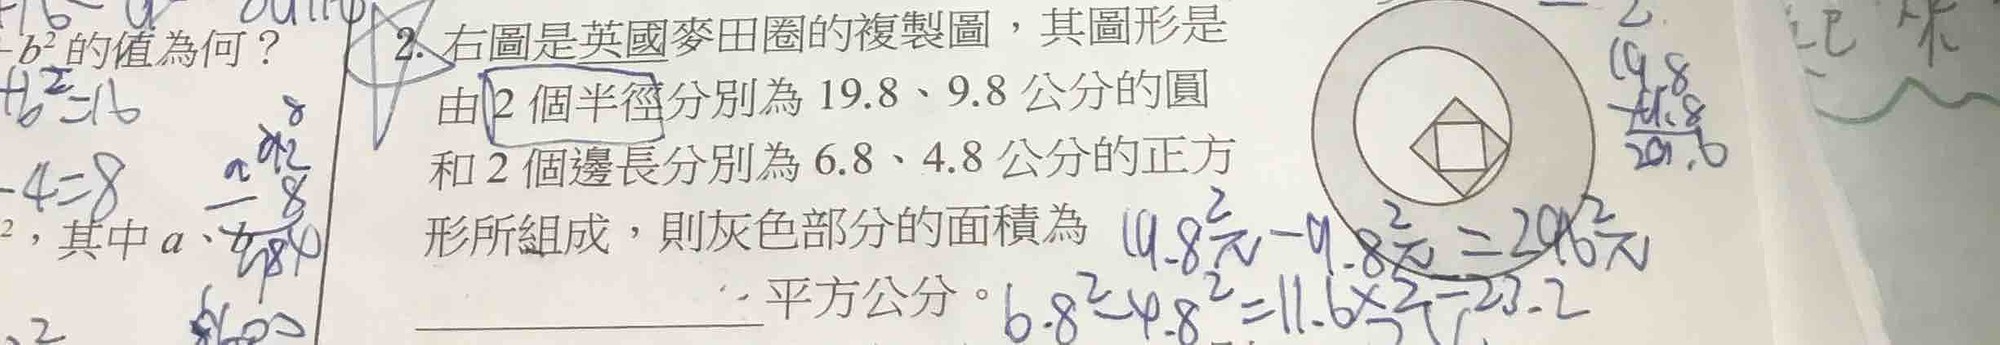 -b²的值為何？
+b²=16
-4=8
²，其中 a、
2. 右圖是英國麥田圈的複製圖，其圖形是
由 2 個半徑分別為 19.8、9.8 公分的圓
和 2 個邊長分別為 6.8、4.8 公分的正方
形所組成，則灰色部分的面積為
平方公分。
19.8²π-9.8²π=29.6²π
6.8²-4.8²=11.6×2=23.2
19.8